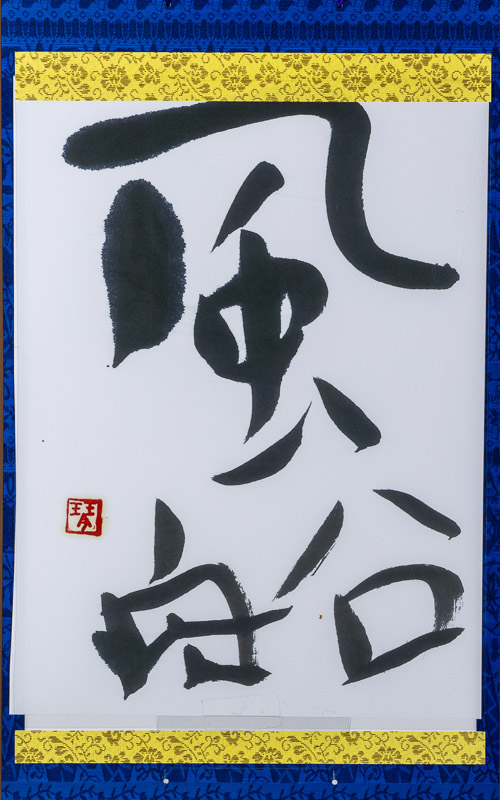 風船
琴